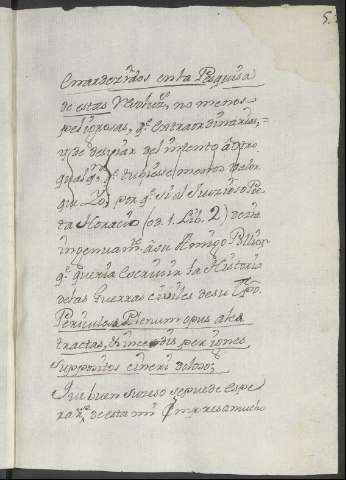 5
en la Pesquisa
de estas no menos
peligrosas, q.e extraordinarias, =
y de desviar del intento à otro
q.e tubiese menos valor
que Yo, por q.e si el Juicioso Poe
ta Horacio (od. 1. Lib. 2) decia
ingenuam.te à su Amigo Polion
q.e queria escrivir la Historia
de las Guerras civiles de su Tpō.
Periculosæ Plenum opus aleæ
tractas, & incedis per ignes
suppositos cineri doloso;
buen suceso se puede espe
rar de esta mi Empresa mucho